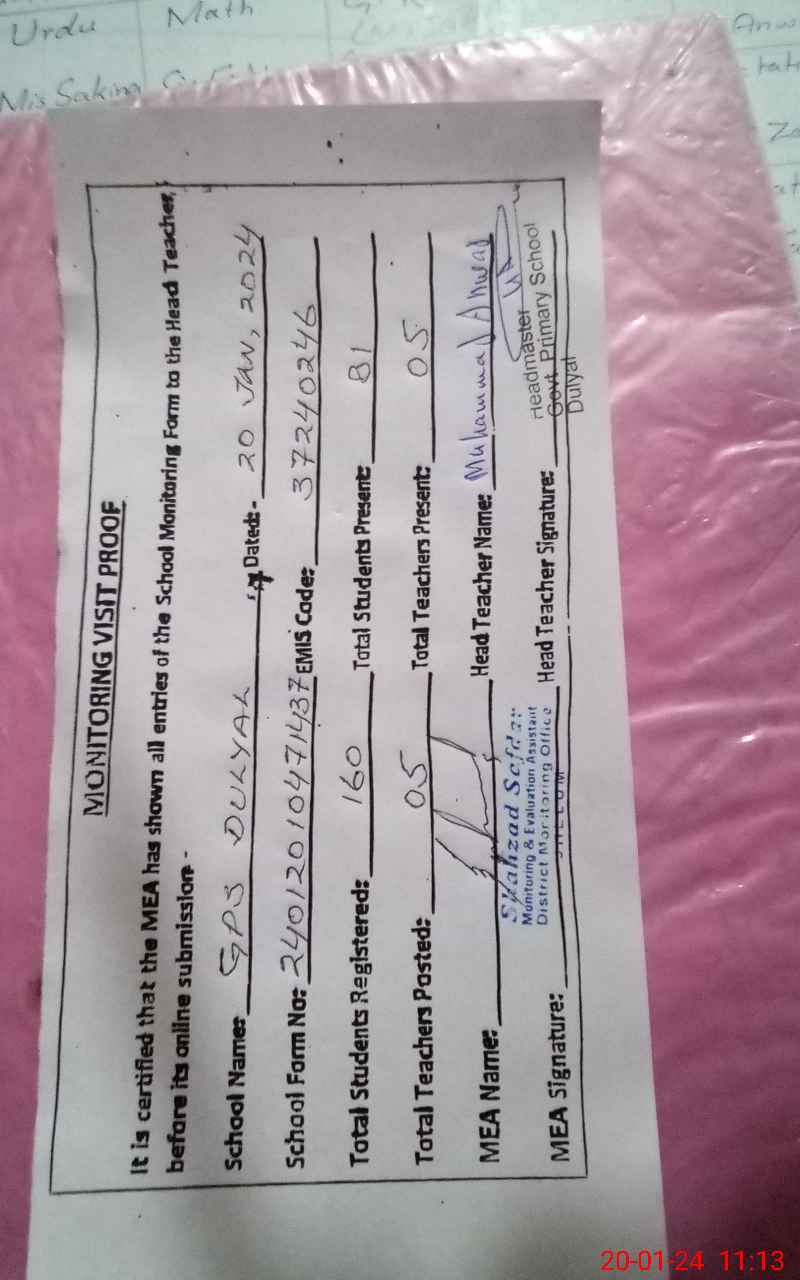 Urdu Math
Mis Sakina
MONITORING VISIT PROOF
It is certified that the MEA has shown all entries of the School Monitoring Form to the Head Teacher,
before its online submission -
School Name: GPS DULYAL Dated:- 20 JAN, 2024
School Form No: 24012010471437 EMIS Code: 37240246
Total Students Registered: 160 Total Students Present: 81
Total Teachers Posted: 05 Total Teachers Present: 05
MEA Name: Head Teacher Name: Muhammad Anwar
Shahzad Safdar
Monitoring & Evaluation Assistant
District Monitoring Office
JHELUM
MEA Signature: Head Teacher Signature:
Headmaster
Govt. Primary School
Dulyal
20-01-24 11:13